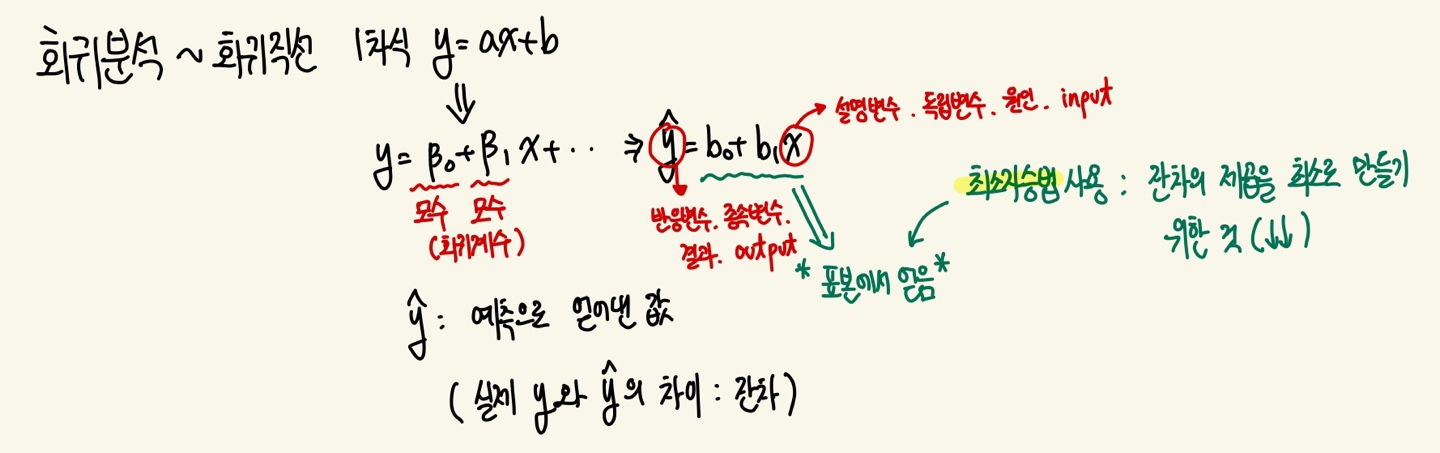 회귀분석 ~ 회귀직선 1차식 y=ax+b
⇓
y= β₀+β₁x+·· ⇒ ŷ=b₀+b₁x
설명변수. 독립변수. 원인. input
모수 모수
(회귀계수)
반응변수. 종속변수.
결과. output
최소자승법 사용 : 잔차의 제곱을 최소로 만들기
위한 것 (↓↓)
* 표본에서 얻음 *
ŷ : 예측으로 얻어낸 값
( 실제 y와 ŷ의 차이 : 잔차 )